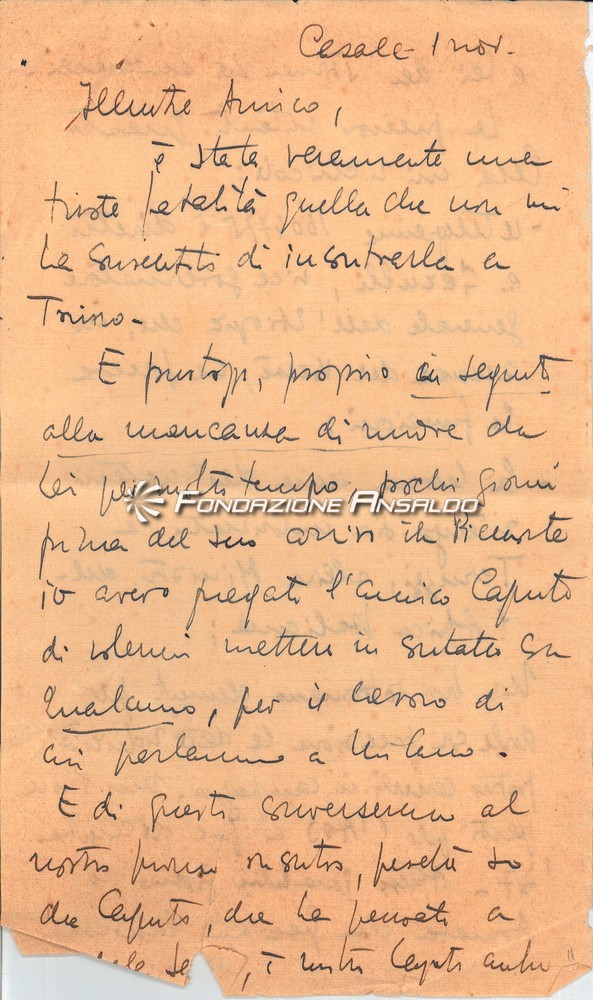 Casale 1 nov.
Illustre Amico,
è stata veramente una
triste fatalità quella che non mi
ha consentito di incontrarla a
Torino.
E purtroppo, proprio in seguito
alla mancanza di nuove da
Lei per molto tempo, pochi giorni
FONDAZIONE ANSALDO
prima del suo arrivo in Piemonte
io avevo pregato l'amico Caputo
di volermi mettere in contatto con
Qualcuno, per il lavoro di
cui parlammo a Milano.
E di questo converseremo al
nostro primo incontro, perché so
che Caputo, che ha pensato a
è molto legato anche